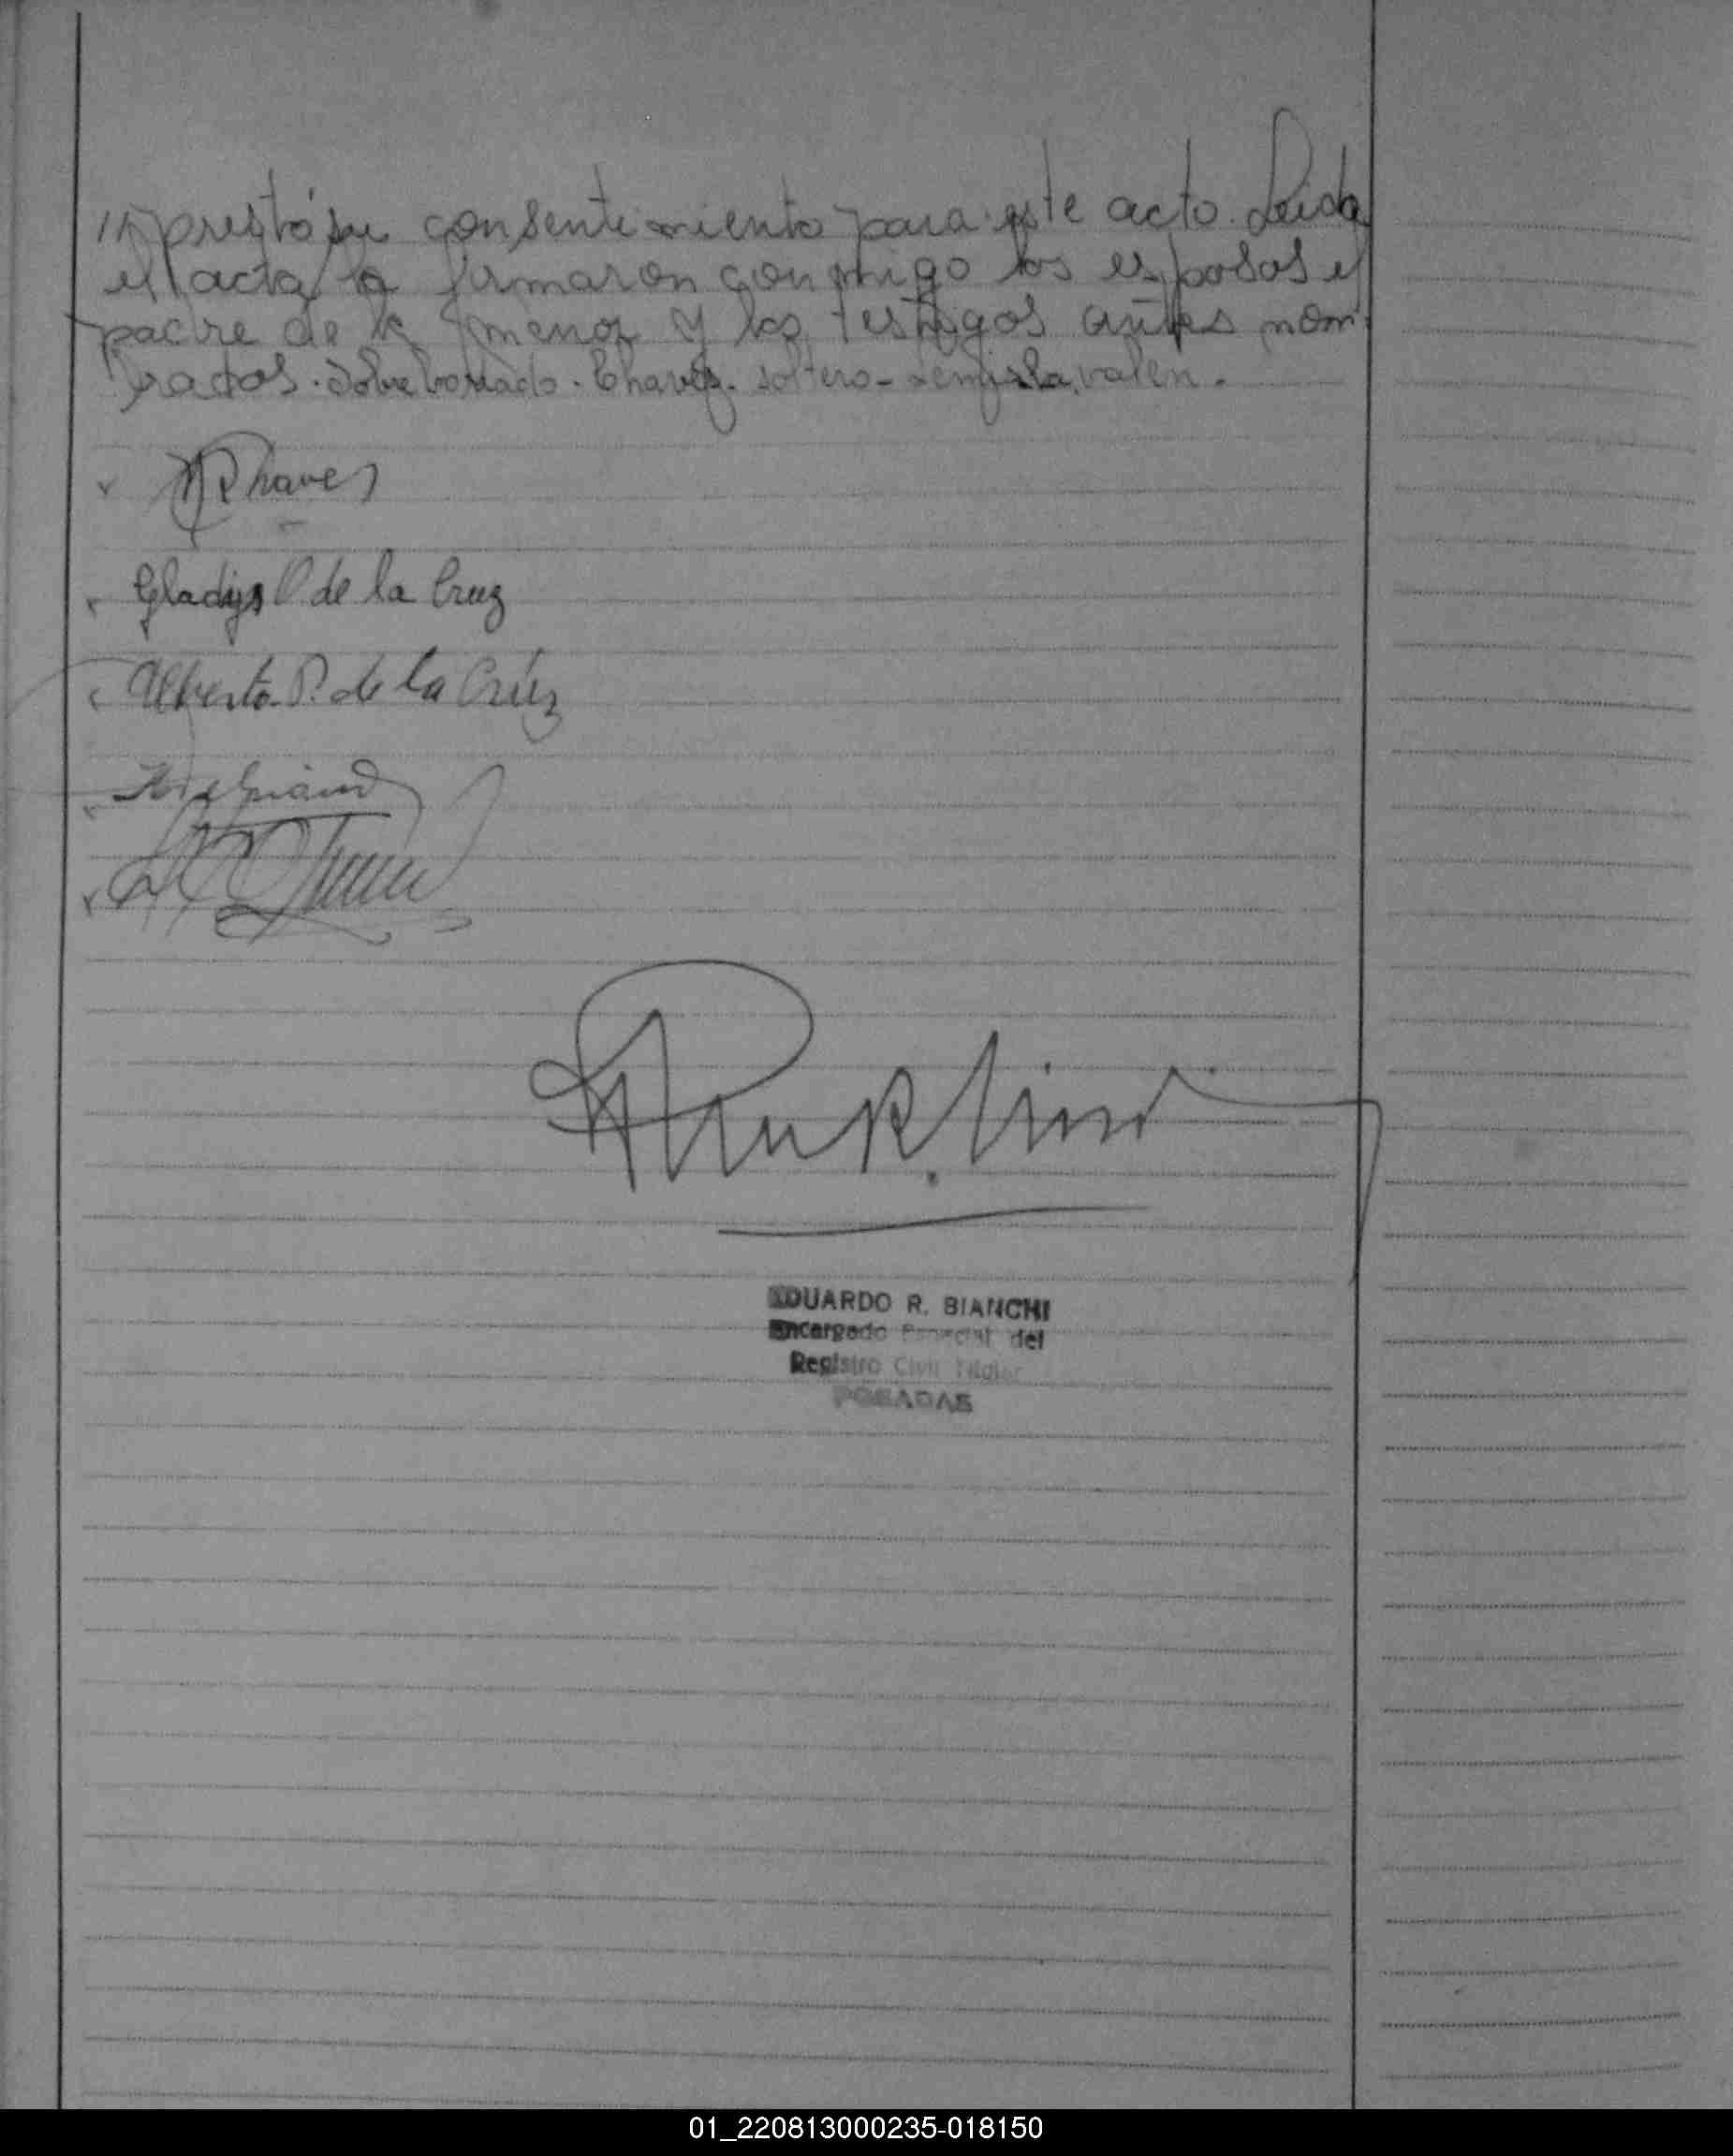 prestó su consentimiento para este acto. Leida
el acta la firmaron conmigo los esposos el
padre de la menor y los testigos antes nom
brados. Sobre borrado. Chavez. soltero - valen.
Chavez
Gladys P. de la Cruz
Alberto P. de la Crúz
EDUARDO R. BIANCHI
Encargado Especial del
Registro Civil
POSADAS
01_220813000235-018150